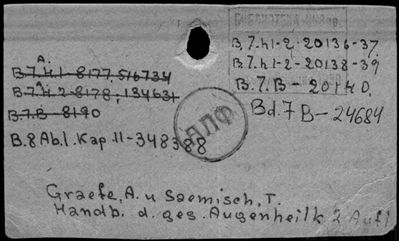 БИБЛИОТЕКА
A.
B.7.H.1-8177, 516734
B.7.H.2-8178, 134631
B.7.B-8190
B.8Ab.1.Kap.11-348388
B.7.h1-2-20136-37.
B.7.h1-2-20138-39
B.7.B-20140.
Bd.7B-24684
АЛФ
Graefe, A. u Saemisch, T.
Handb. d. ges. Augenheilk. 2 Aufl